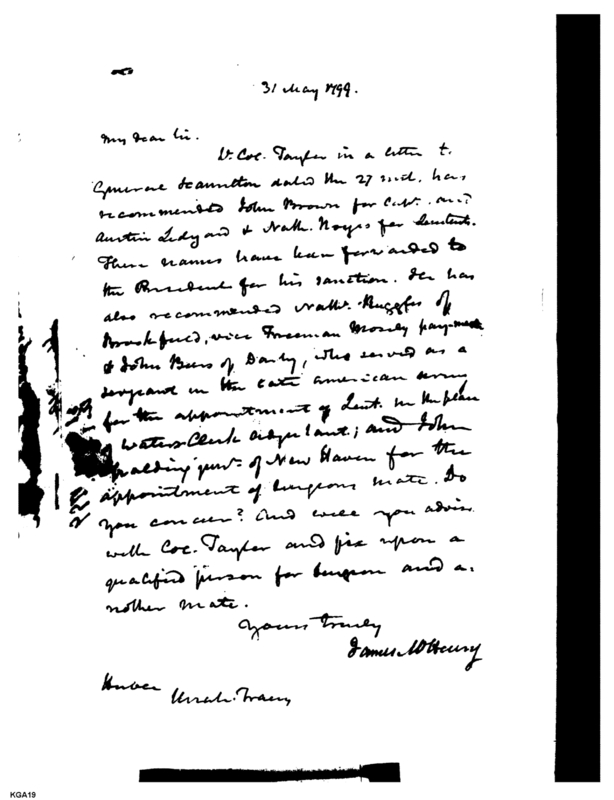 31 May 1799.
My dear Sir.
Lt. Col. Taylor in a letter to
General Hamilton dated the 27 inst. has
recommended John Brown for Capt. and
Austin Ledyard & Nath. Noyes for Lieutent.
These names have been forwarded to
the President for his sanction. He has
also recommended Nathl. Ruggles of
Brookfield, vice Freeman Mosely pay-master
& John Beers of Darby, who served as a
sergeant in the late american army
for the appointment of Lieut. in the place
of Waters Clark adjutant; and John
Spalding junr. of New Haven for the
appointment of Surgeons mate. Do
you concur? And will you advise
with Col. Taylor and fix upon a
qualified person for Surgeon and a-
nother mate.
Yours truely
James McHenry
Uriah Tracy
KGA19